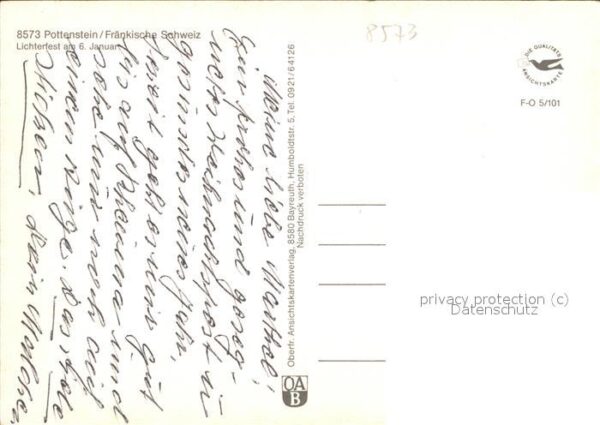 8573 Pottenstein/Fränkische Schweiz
Lichterfest am 6. Januar
8573
DIE QUALITÄTS
ANSICHTSKARTE
F-O 5/101
Meine liebe
Ein frohes und geseg-
netes Weihnachtsfest u.
gesundes neues Jahr,
geht es mir gut
bis auf Rheuma und
sehe nur noch auf
einem Auge. Das
Dein
Oberfr. Ansichtskartenverlag, 8580 Bayreuth, Humboldtstr. 5, Tel. 0921/64126
Nachdruck verboten
OA
B
privacy protection (c)
Datenschutz